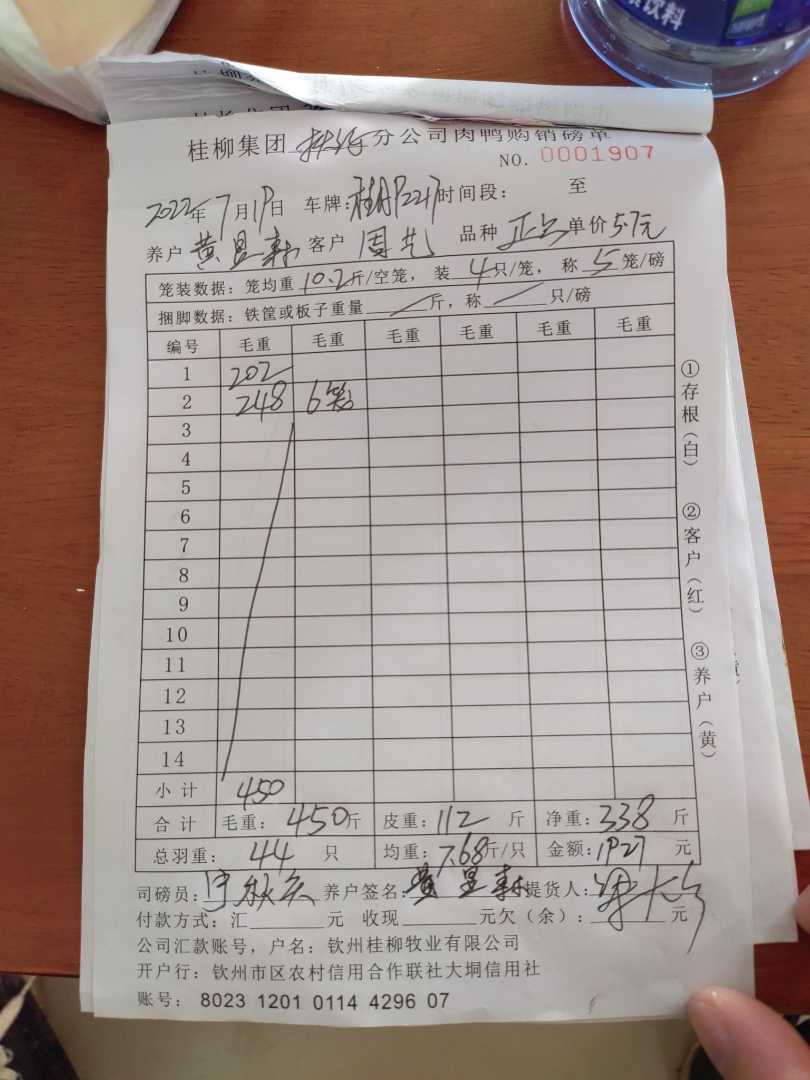 饮料
桂柳集团 分公司肉鸭购销磅单
NO. 0001907
2022年7月19日 车牌: 时间段: 至
养户 黄昱 客户 周 品种 正 单价5.7元
笼装数据: 笼均重10.2斤/空笼, 装4只/笼, 称5笼/磅
捆脚数据: 铁筐或板子重量 斤, 称 只/磅
编号 毛重 毛重 毛重 毛重 毛重 毛重
1 202
2 248 6笼
3
4
5
6
7
8
9
10
11
12
13
14
小计 450
合计 毛重: 450斤 皮重: 112 斤 净重: 338 斤
总羽重: 44 只 均重: 7.68斤/只 金额: 1927 元
司磅员: 养户签名: 黄昱 提货人:
付款方式: 汇 元 收现 元欠(余): 元
公司汇款账号, 户名: 钦州桂柳牧业有限公司
开户行: 钦州市区农村信用合作联社大垌信用社
账号: 8023 1201 0114 4296 07
①存根(白) ②客户(红) ③养户(黄)